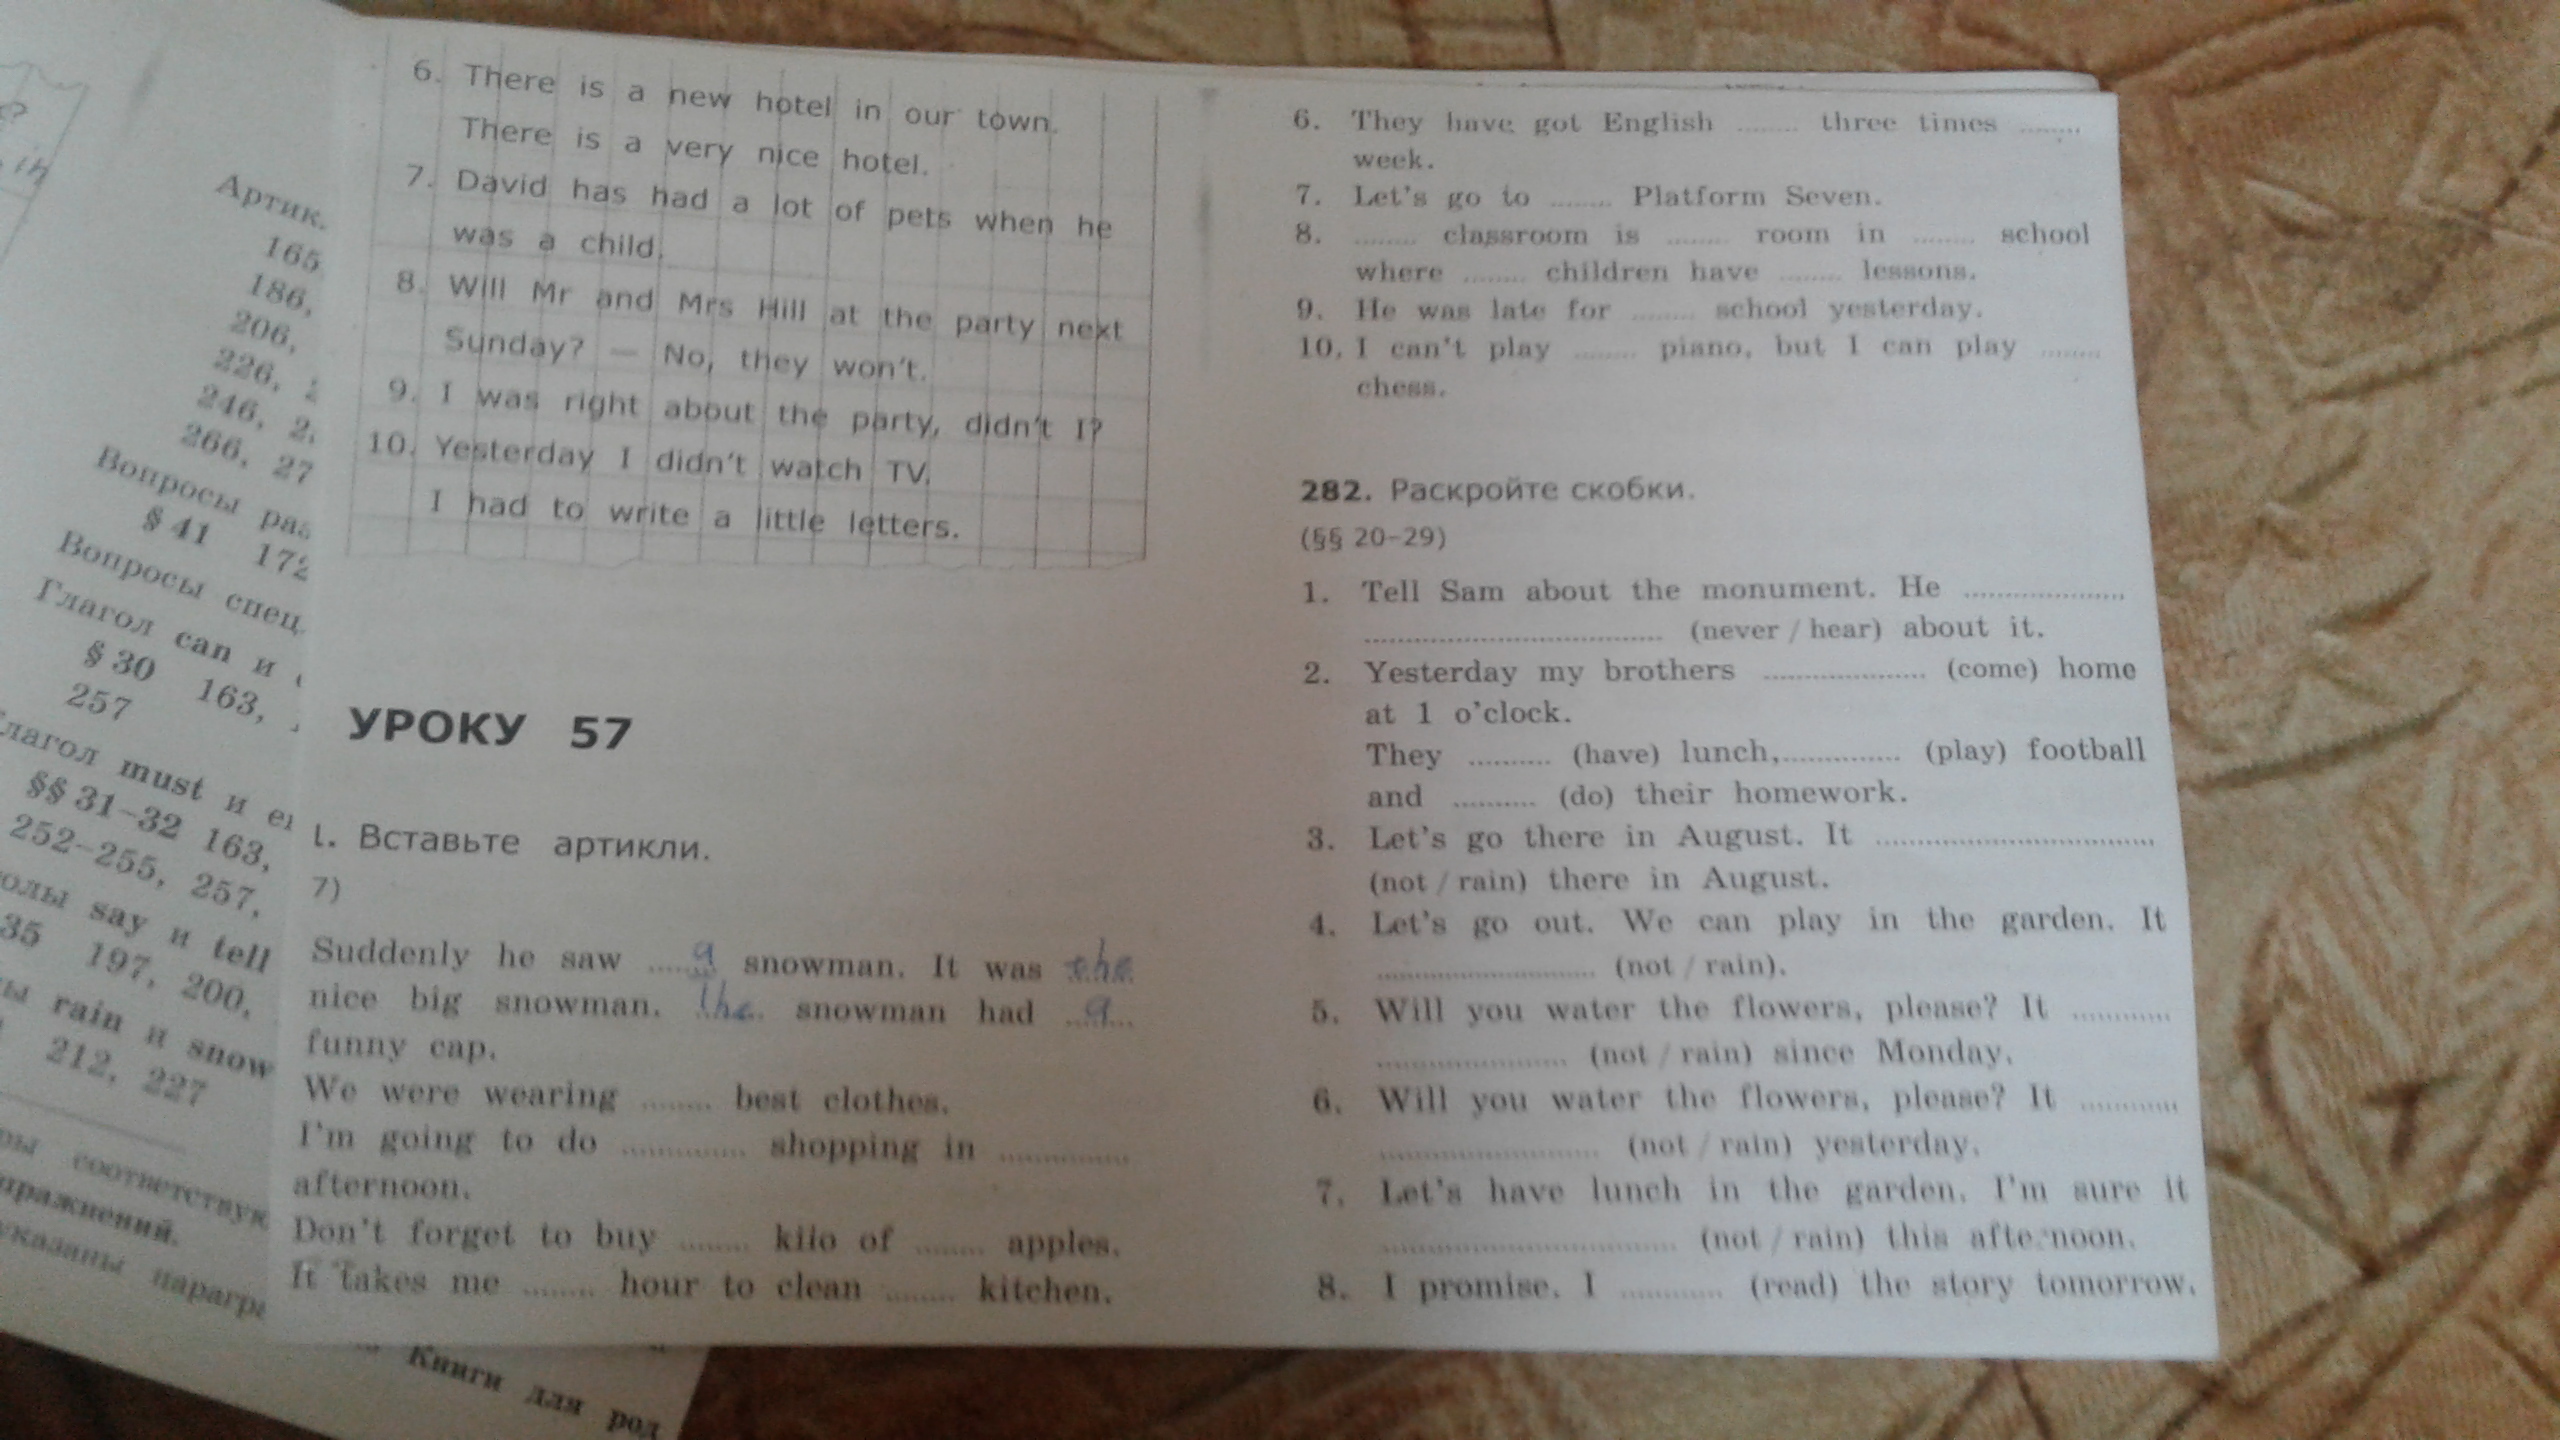 Артик.
165
186,
206,
226,
246, 2
266, 27
Вопросы
§ 41 172
Вопросы спец.
Глагол can и
§ 30 163,
257
must и
§§ 31–32 163,
252–255, 257,
say и tell
35 197, 200,
rain и snow
212, 227
Книги для род
6. There is a new hotel in our town.
There is a very nice hotel.
7. David has had a lot of pets when he
was a child.
8. Will Mr and Mrs Hill at the party next
Sunday? — No, they won't.
9. I was right about the party, didn't I?
10. Yesterday I didn't watch TV.
I had to write a little letters.
УРОКУ 57
1. Вставьте артикли.
7)
Suddenly he saw ........ a snowman. It was the
nice big snowman. the snowman had a
funny cap.
We were wearing ........ best clothes.
I'm going to do .............. shopping in ..............
afternoon.
Don't forget to buy ........ kilo of ........ apples.
It takes me ........ hour to clean ........ kitchen.
6. They have got English ........ three times ........
week.
7. Let's go to ........ Platform Seven.
8. ........ classroom is ........ room in ........ school
where ........ children have ........ lessons.
9. He was late for ........ school yesterday.
10. I can't play ........ piano, but I can play ........
chess.
282. Раскройте скобки.
(§§ 20–29)
1. Tell Sam about the monument. He ....................
..................................... (never / hear) about it.
2. Yesterday my brothers .................... (come) home
at 1 o'clock.
They .......... (have) lunch, .............. (play) football
and .......... (do) their homework.
3. Let's go there in August. It ..................................
(not / rain) there in August.
4. Let's go out. We can play in the garden. It
........................... (not / rain).
5. Will you water the flowers, please? It ............
....................... (not / rain) since Monday.
6. Will you water the flowers, please? It ............
........................... (not / rain) yesterday.
7. Let's have lunch in the garden. I'm sure it
.................................... (not / rain) this afternoon.
8. I promise. I ............ (read) the story tomorrow.